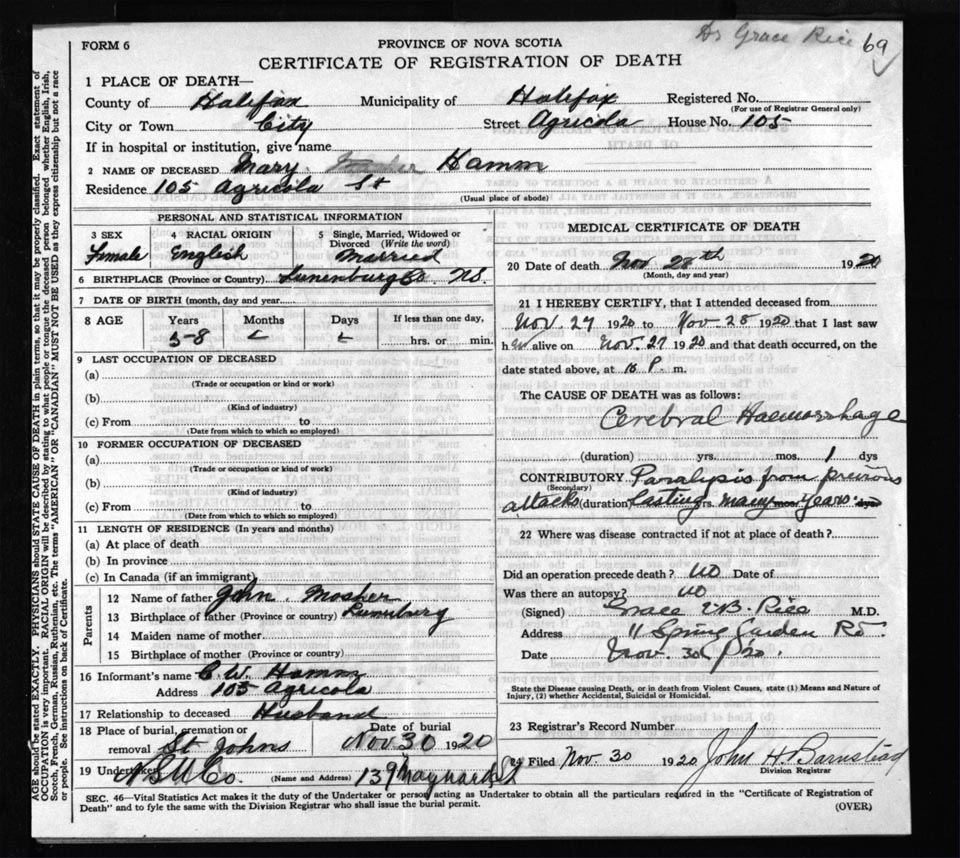 Dr Grace Rice 69
FORM 6
PROVINCE OF NOVA SCOTIA
CERTIFICATE OF REGISTRATION OF DEATH
1 PLACE OF DEATH—
County of Halifax Municipality of Halifax Registered No.
(For use of Registrar General only)
City or Town City Street Agricola House No. 105
If in hospital or institution, give name
2 NAME OF DECEASED Mary Hamm
Residence 105 Agricola St
(Usual place of abode)
PERSONAL AND STATISTICAL INFORMATION
3 SEX 4 RACIAL ORIGIN 5 Single, Married, Widowed or Divorced (Write the word)
Female English Married
6 BIRTHPLACE (Province or Country) Lunenburg Co. NS.
7 DATE OF BIRTH (month, day and year)
8 AGE Years Months Days If less than one day,
58 hrs. or min.
9 LAST OCCUPATION OF DECEASED
(a)
(Trade or occupation or kind or work)
(b)
(Kind of industry)
(c) From to
(Date from which to which so employed)
10 FORMER OCCUPATION OF DECEASED
(a)
(Trade or occupation or kind of work)
(b)
(Kind of industry)
(c) From to
(Date from which to which so employed)
11 LENGTH OF RESIDENCE (In years and months)
(a) At place of death
(b) In province
(c) In Canada (if an immigrant)
Parents
12 Name of father John Mosher
13 Birthplace of father (Province or country) Lunenburg
14 Maiden name of mother
15 Birthplace of mother (Province or country)
16 Informant's name C. W. Hamm
Address 105 Agricola
17 Relationship to deceased Husband
18 Place of burial, cremation or Date of burial
removal St Johns Nov 30 1920
19 Undertaker N S U Co. (Name and Address) 139 Maynard St
MEDICAL CERTIFICATE OF DEATH
20 Date of death Nov 28th 1920
(Month, day and year)
21 I HEREBY CERTIFY, that I attended deceased from
Nov. 27 1920 to Nov. 28 1920 that I last saw
her alive on Nov. 27 1920 and that death occurred, on the
date stated above, at P. m.
The CAUSE OF DEATH was as follows:
Cerebral Haemorrhage
(duration) yrs. mos. 1 dys
CONTRIBUTORY Paralysis from previous
(Secondary)
attacks (duration) lasting yrs. many mos. years dys
22 Where was disease contracted if not at place of death?
Did an operation precede death? no Date of
Was there an autopsy? no
(Signed) Grace E. B. Rice M.D.
Address 11 Spring Garden Rd.
Date Nov. 30 / 20.
State the Disease causing Death, or in death from Violent Causes, state (1) Means and Nature of
Injury, (2) whether Accidental, Suicidal or Homicidal.
23 Registrar's Record Number
24 Filed Nov. 30 1920 John H. Barnstead
Division Registrar
SEC. 46—Vital Statistics Act makes it the duty of the Undertaker or person acting as Undertaker to obtain all the particulars required in the "Certificate of Registration of
Death" and to fyle the same with the Division Registrar who shall issue the burial permit.
(OVER)
AGE should be stated EXACTLY. PHYSICIANS should STATE CAUSE OF DEATH in plain terms, so that it may be properly classified. Exact statement of
OCCUPATION is very important. RACIAL ORIGIN will be described by stating to what people or tongue the deceased person belonged whether English, Irish,
Scotch, French, German, Russian, Ruthenian, etc. The terms "AMERICAN" OR "CANADIAN" MUST NOT BE USED as they express citizenship but not a race
or people. See instructions on back of Certificate.